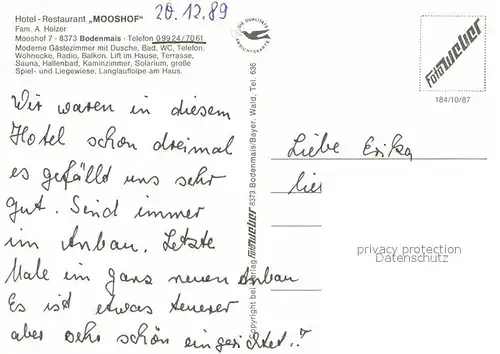 Hotel - Restaurant „MOOSHOF“
Fam. A. Holzer
Mooshof 7 · 8373 Bodenmais · Telefon 09924/7061
Moderne Gästezimmer mit Dusche, Bad, WC, Telefon.
Wohnecke, Radio, Balkon. Lift im Hause, Terrasse,
Sauna, Hallenbad, Kaminzimmer, Solarium, große
Spiel- und Liegewiese. Langlaufloipe am Haus.
20.12.89
Wir waren in diesem
Hotel schon dreimal
es gefällt uns sehr
gut. Sind immer
im Anbau. Letzte
Male im ganz neuen Anbau
Es ist etwas teuerer
aber sehr schön eingerichtet.
DIE QUALITÄTS
ANSICHTSKARTE
Copyright bei Verlag Foto Weber 8373 Bodenmais/Bayer. Wald, Tel. 636
Foto Weber
184/10/87
Liebe Erika
lies
privacy protection
Datenschutz